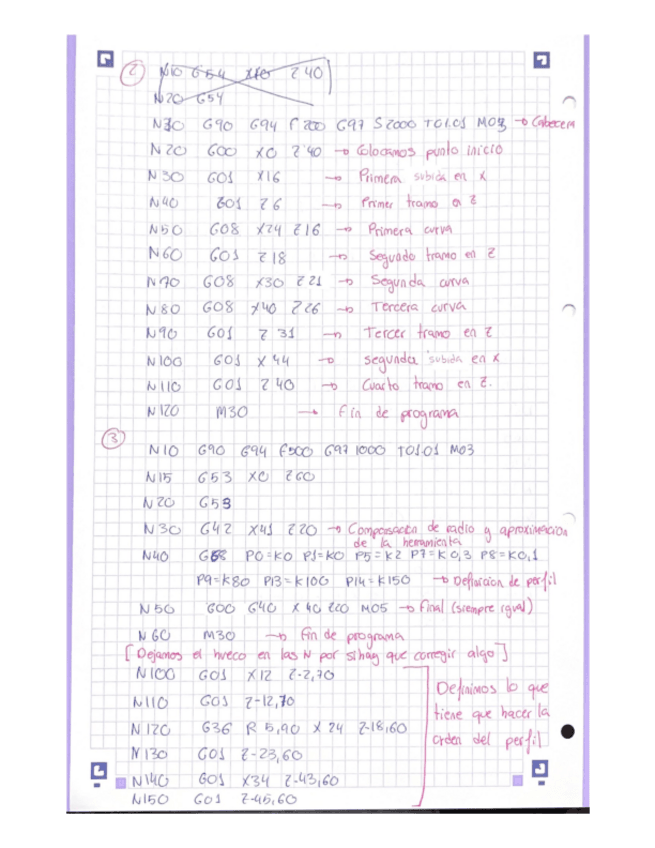 2
N10 G54 X10 Z40
N20 G54
N30 G90 G94 F200 G97 S2000 T01.01 M03 → Cabecera
N20 G00 X0 Z40 → Colocamos punto inicio
N30 G01 X16 → Primera subida en X
N40 G01 Z6 → Primer tramo en Z
N50 G08 X24 Z16 → Primera curva
N60 G01 Z18 → Segundo tramo en Z
N70 G08 X30 Z21 → Segunda curva
N80 G08 X40 Z26 → Tercera curva
N90 G01 Z31 → Tercer tramo en Z
N100 G01 X44 → segunda subida en X
N110 G01 Z40 → Cuarto tramo en Z.
N120 M30 → Fin de programa
3
N10 G90 G94 F500 G97 1000 T01.01 M03
N15 G53 X0 Z60
N20 G53
N30 G42 X41 Z20 → Compensación de radio y aproximación
de la herramienta
N40 G68 P0=K0 P1=K0 P5=K2 P7=K0,3 P8=K0,1
P9=K80 P13=K100 P14=K150 → Definicion de perfil
N50 G00 G40 X40 Z20 M05 → Final (siempre igual)
N60 M30 → fin de programa
[Dejamos el hueco en las N por si hay que corregir algo]
N100 G01 X12 Z-2,70
N110 G01 Z-12,70
N120 G36 R5,90 X24 Z-18,60
N130 G01 Z-23,60
N140 G01 X34 Z-43,60
N150 G01 Z-45,60
Definimos lo que
tiene que hacer la
orden del perfil